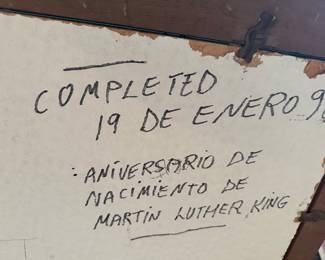 COMPLETED
19 DE ENERO
: ANIVERSARIO DE
NACIMIENTO DE
MARTIN LUTHER KING